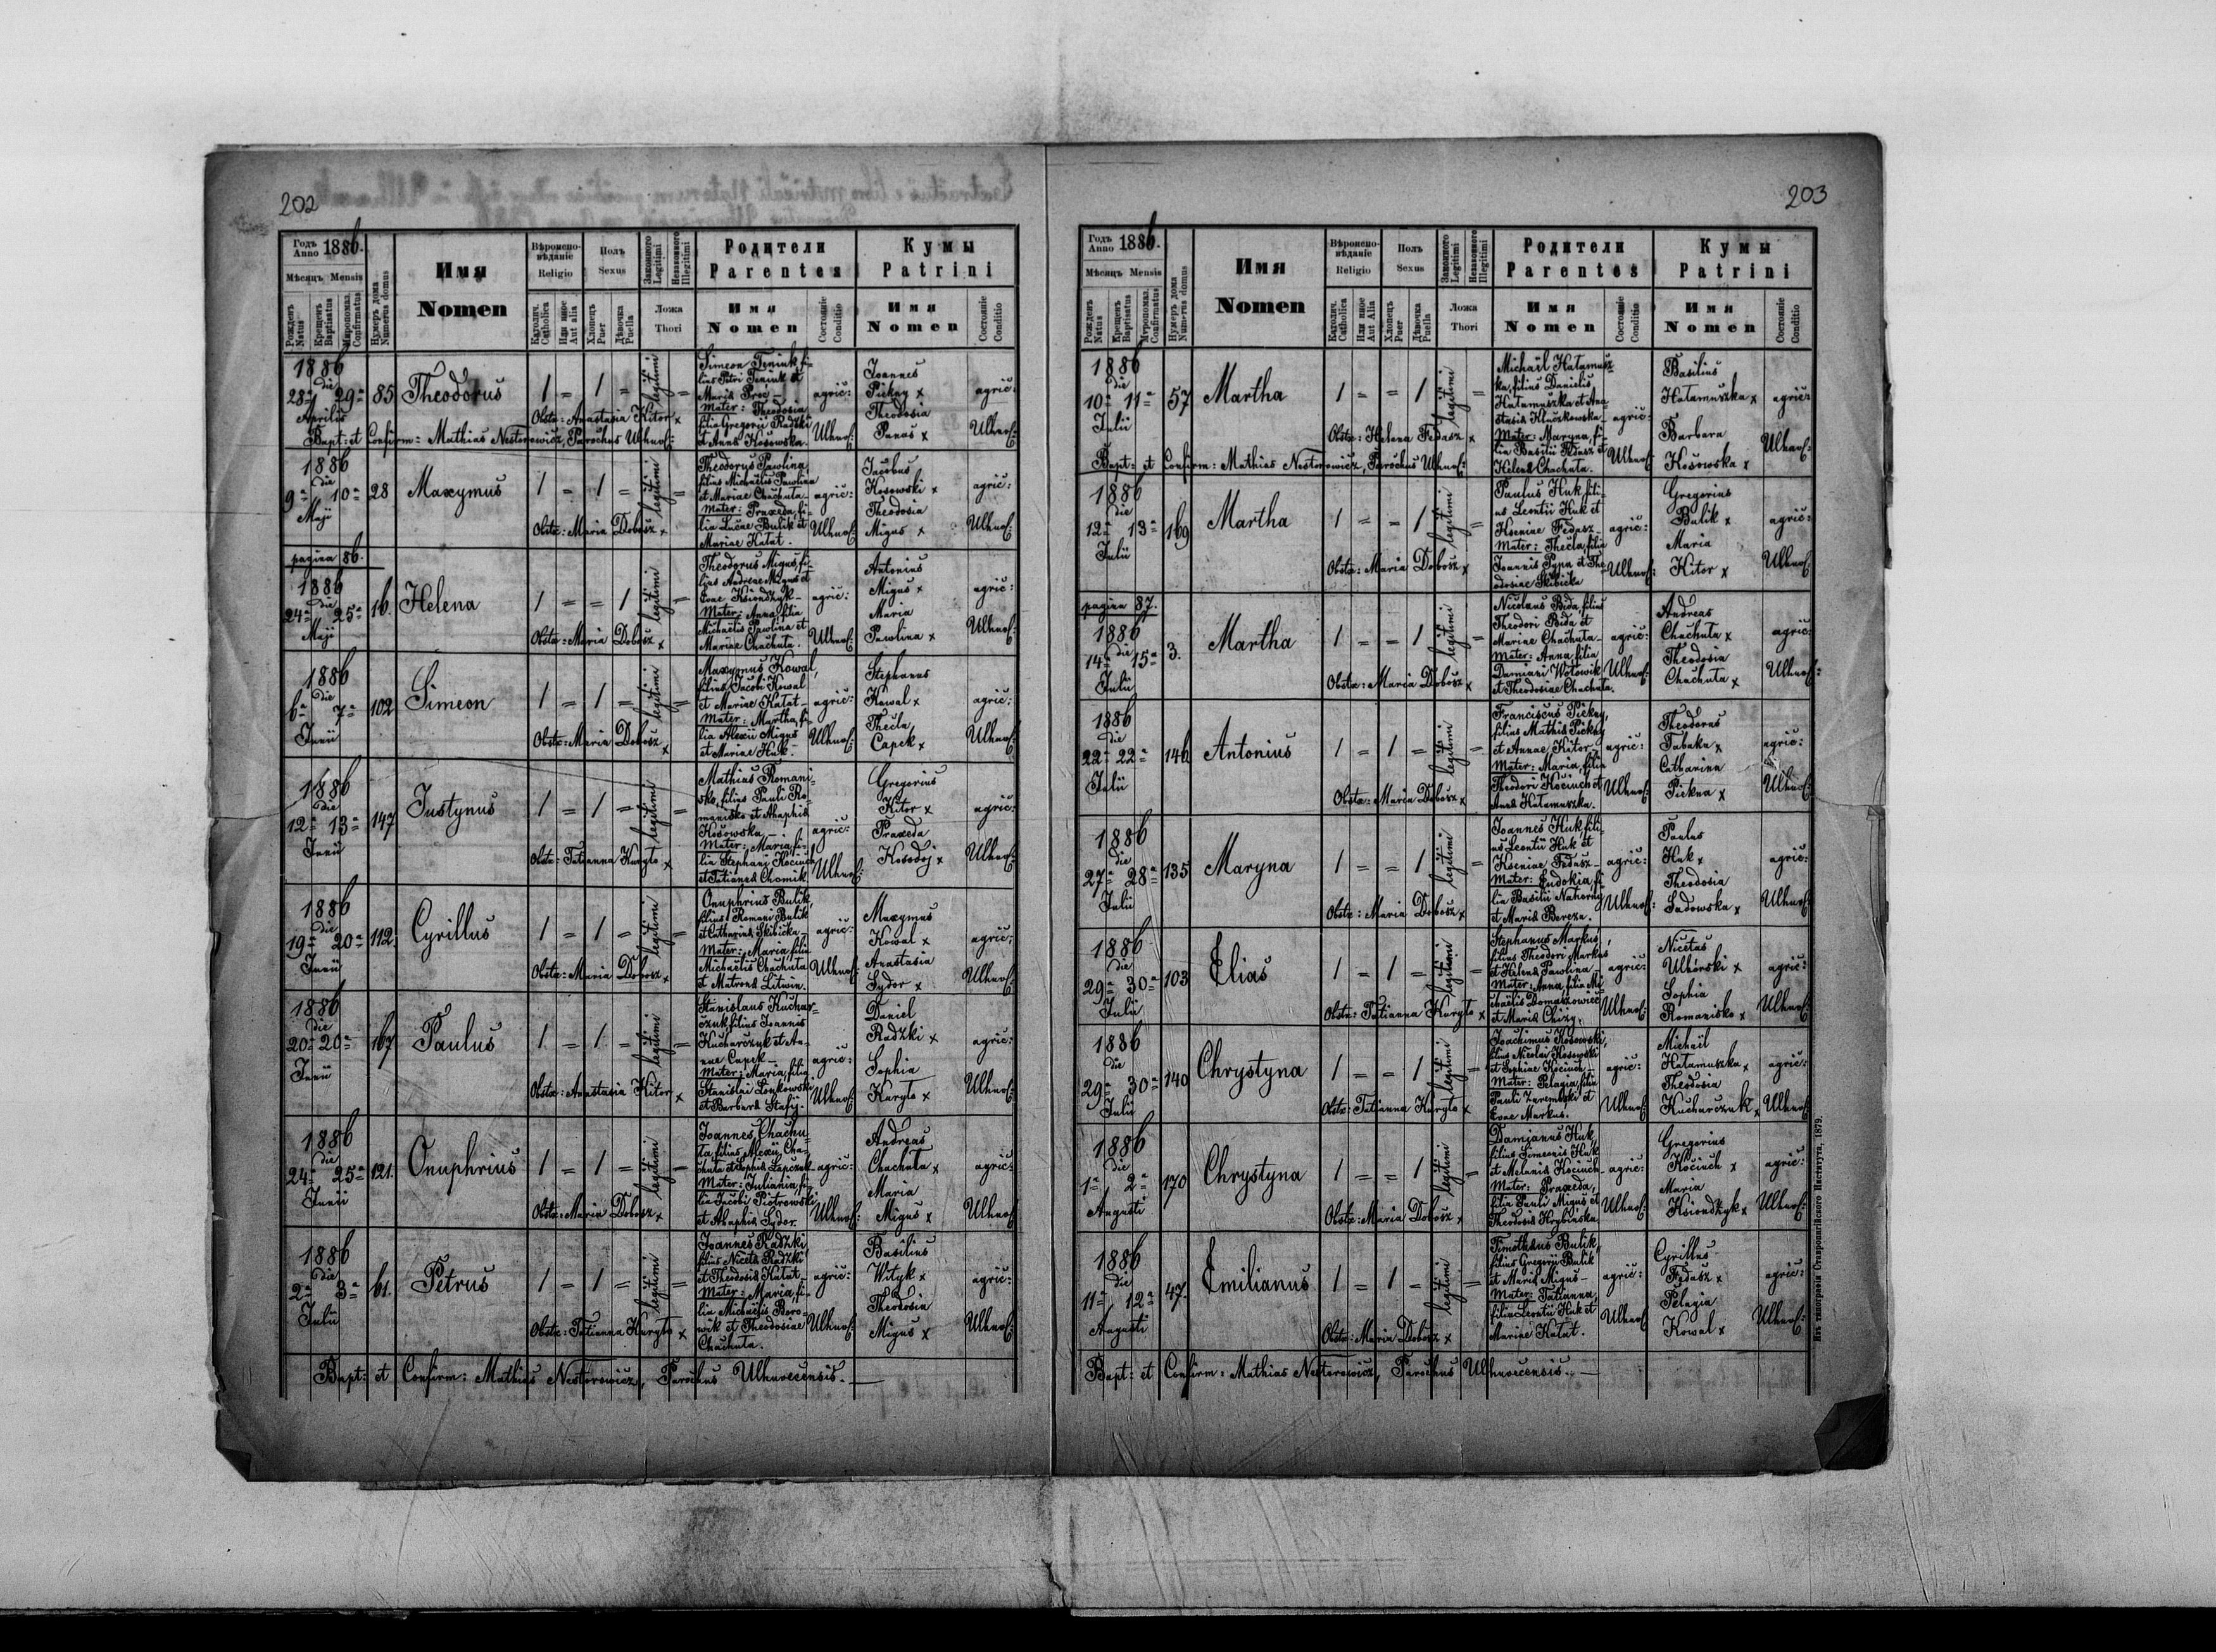 202
Годъ Anno 1886.
Мѣсяцъ Mensis
Рожденъ Natus
Крещенъ Baptisatus
Мѵропомаз. Confirmatus
Нумеръ дома Numerus domus
Имя
Nomen
Вѣроиспо-вѣданіе
Religio
Католич. Catholica
Или иное Aut alia
Полъ
Sexus
Хлопецъ Puer
Дѣвочка Puella
Законного Legitimi
Незаконного Illegitimi
Ложа
Thori
Родители
Parentes
Имя
Nomen
Состояніе Conditio
Кумы
Patrini
Имя
Nomen
Состояніе Conditio
1886
die
28a 29a
Aprilis
85
Theodorus
1 = 1 = legitimi =
Obstx: Anastasia Kitor x
Simeon Feniuk fi-
lius Petri Feniuk et
Maria Proć –
Mater: Theodosia
filia Gregorii Radzki
et Anna Kosowska.
agric:
Ulhnof:
Joannes
Pickny x
Theodosia
Panas x
agric:
Ulhnof:
Bapt: et Confirm: Mathias Nestorowicz, Parochus Ulhnof:
1886
die
9a 10a
Maji
28
Maxymus
1 = 1 = legitimi =
Obstx: Maria Dobosz x
Theodorus Pawlina
filius Michaelis Pawlina
et Mariae Chachuta –
Mater: Praxeda, fi-
lia Lucae Bulik et
Mariae Hatat.
agric:
Ulhnof:
Jacobus
Kosowski x
Theodosia
Migus x
agric:
Ulhnof:
pagina 86.
1886
die
24a 25a
Maji
16.
Helena
1 = = 1 legitimi =
Obstx: Maria Dobosz x
Theodorus Migus, fi-
lius Andreae Migus et
Evae Ksiondzyk –
Mater: Anna filia
Michaelis Pawlina et
Mariae Chachuta.
agric:
Ulhnof:
Antonius
Migus x
Maria
Pawlina x
agric:
Ulhnof:
1886
die
6a 7a
Junii
102
Simeon
1 = 1 = legitimi =
Obstx: Maria Dobosz x
Maxymus Kowal,
filius Jacobi Kowal
et Mariae Hatat –
Mater: Martha, fi-
lia Alexii Migus
et Mariae Huk –
agric:
Ulhnof:
Stephanus
Kowal x
Thecla
Capek x
agric:
Ulhnof:
1886
die
12a 13a
Junii
147
Justynus
1 = 1 = legitimi =
Obstx: Tatianna Kuryto x
Mathias Romani-
sko, filius Pauli Ro-
manisko et Ahaphia
Kosowska, –
Mater: Maria, fi-
lia Stephani Kociuch
et Tatiana Chomik.
agric:
Ulhnof:
Gregorius
Kitor x
Praxeda
Kosodoj x
agric:
Ulhnof:
1886
die
19a 20a
Junii
112.
Cyrillus
1 = 1 = legitimi =
Obstx: Maria Dobosz x
Onuphrius Bulik,
filius Romani Bulik
et Catharina Skibicka –
Mater: Maria, filia
Michaelis Chachuta
et Matrona Litwin.
agric:
Ulhnof:
Maxymus
Kowal x
Anastasia
Sydor x
agric:
Ulhnof:
1886
die
20a 20a
Junii
167
Paulus
1 = 1 = legitimi =
Obstx: Anastasia Kitor x
Stanislaus Kuchar-
czuk, filius Joannis
Kucharczyk et An-
nae Capek –
Mater: Maria, filia
Stanislai Lonkowski
et Barbara Stafij.
agric:
Ulhnof:
Daniel
Radzki x
Sophia
Kuryto x
agric:
Ulhnof:
1886
die
24a 25a
Junii
121.
Onuphrius
1 = 1 = legitimi =
Obstx: Maria Dobosz x
Joannes Chachu-
ta, filius Alexii Cha-
chuta et Sophia Lapczuk –
Mater: Juliania, fi-
lia Jacobi Piotrowski
et Ahaphia Sydor.
agric:
Ulhnof:
Andreas
Chachuta x
Maria
Migus x
agric:
Ulhnof:
1886
die
2a 3a
Julii
61.
Petrus
1 = 1 = legitimi =
Obstx: Tatianna Kuryto x
Joannes Radzki,
filius Niceta Radzki
et Theodosia Hatat –
Mater: Maria, fi-
lia Michaelis Boro-
wik et Theodosiae
Chachuta.
agric:
Ulhnof:
Basilius
Wityk x
Theodosia
Migus x
agric:
Ulhnof:
Bapt: et Confirm: Mathias Nestorowicz, Parochus Ulhnovecensis. –
203
Годъ Anno 1886.
Мѣсяцъ Mensis
Рожденъ Natus
Крещенъ Baptisatus
Мѵропомаз. Confirmatus
Нумеръ дома Numerus domus
Имя
Nomen
Вѣроиспо-вѣданіе
Religio
Католич. Catholica
Или иное Aut alia
Полъ
Sexus
Хлопецъ Puer
Дѣвочка Puella
Законного Legitimi
Незаконного Illegitimi
Ложа
Thori
Родители
Parentes
Имя
Nomen
Состояніе Conditio
Кумы
Patrini
Имя
Nomen
Состояніе Conditio
1886
die
10a 11a
Julii
57
Martha
1 = = 1 legitimi =
Obstx: Helena Fedasz x
Michaël Hatamusz-
ka, filius Danielis
Hatamuszka et Ana-
stasia Kluczkowska –
Mater: Maryna, fi-
lia Basilii Fedasz et
Helena Chachuta.
agric:
Ulhnof:
Basilius
Hatamuszka x
Barbara
Kosowska x
agric:
Ulhnof:
Bapt: et Confirm: Mathias Nestorowicz, Parochus Ulhnof:
1886
die
12a 13a
Julii
169
Martha
1 = = 1 legitimi =
Obstx: Maria Dobosz x
Paulus Huk, fili-
us Leontii Huk et
Kseniae Fedasz –
Mater: Thecla, filia
Joannis Pypa et The-
odosiae Skibicka
agric:
Ulhnof:
Gregorius
Bulik x
Maria
Kitor x
agric:
Ulhnof:
pagina 87.
1886
die
14a 15a
Julii
3.
Martha
1 = = 1 legitimi =
Obstx: Maria Dobosz x
Nicolaus Bida, filius
Theodori Bida et
Mariae Chachuta –
Mater: Anna, filia
Damiani Wotowik
et Theodosiae Chachuta.
agric:
Ulhnof:
Andreas
Chachuta x
Theodosia
Chachuta x
agric:
Ulhnof:
1886
die
22a 22a
Julii
146
Antonius
1 = 1 = legitimi =
Obstx: Maria Dobosz x
Franciscus Pickny,
filius Mathia Pickny
et Annae Kitor –
Mater: Maria, filia
Theodori Kociuch et
Anna Hatamuszka.
agric:
Ulhnof:
Theodorus
Tabaka x
Catharina
Pickna x
agric:
Ulhnof:
1886
die
27a 28a
Julii
135
Maryna
1 = = 1 legitimi =
Obstx: Maria Dobosz x
Joannes Huk, fili-
us Leontii Huk et
Kseniae Fedasz –
Mater: Eudokia, fi-
lia Basilii Nahorny
et Maria Bereza.
agric:
Ulhnof:
Paulus
Huk x
Theodosia
Sadowska x
agric:
Ulhnof:
1886
die
29a 30a
Julii
103
Elias
1 = 1 = legitimi =
Obstx: Tatianna Kuryto x
Stephanus Markus,
filius Theodori Markus
et Helena Pawlina –
Mater: Anna, filia Mi-
chaëlis Domaszowiec
et Maria Chizy.
agric:
Ulhnof:
Nicetas
Ulhorski x
Sophia
Romanisko x
agric:
Ulhnof:
1886
die
29a 30a
Julii
140
Chrystyna
1 = = 1 legitimi =
Obstx: Tatianna Kuryto x
Joachimus Kosowski,
filius Nicolai Kosowski
et Sophiae Kociuch –
Mater: Pelagia, filia
Pauli Zarembski et
Evae Markus.
agric:
Ulhnof:
Michaël
Hatamuszka x
Theodosia
Kucharczuk x
agric:
Ulhnof:
1886
die
1a 2a
Augusti
170
Chrystyna
1 = = 1 legitimi =
Obstx: Maria Dobosz x
Damianus Huk,
filius Simeonis Huk
et Melania Kociuch –
Mater: Praxeda,
filia Pauli Migus et
Theodosia Hrybinska
agric:
Ulhnof:
Gregorius
Kociuch x
Maria
Ksiondzyk x
agric:
Ulhnof:
1886
die
11a 12a
Augusti
47.
Emilianus
1 = 1 = legitimi =
Obstx: Maria Dobosz x
Timotheus Bulik,
filius Gregorii Bulik
et Maria Migus –
Mater: Tatianna,
filia Leontii Huk et
Mariae Hatat.
agric:
Ulhnof:
Cyrillus
Fedasz x
Pelagia
Kowal x
agric:
Ulhnof:
Bapt: et Confirm: Mathias Nestorowicz, Parochus Ulhnovecensis. –
Изъ типографіи Ставропигійского Института, 1879.